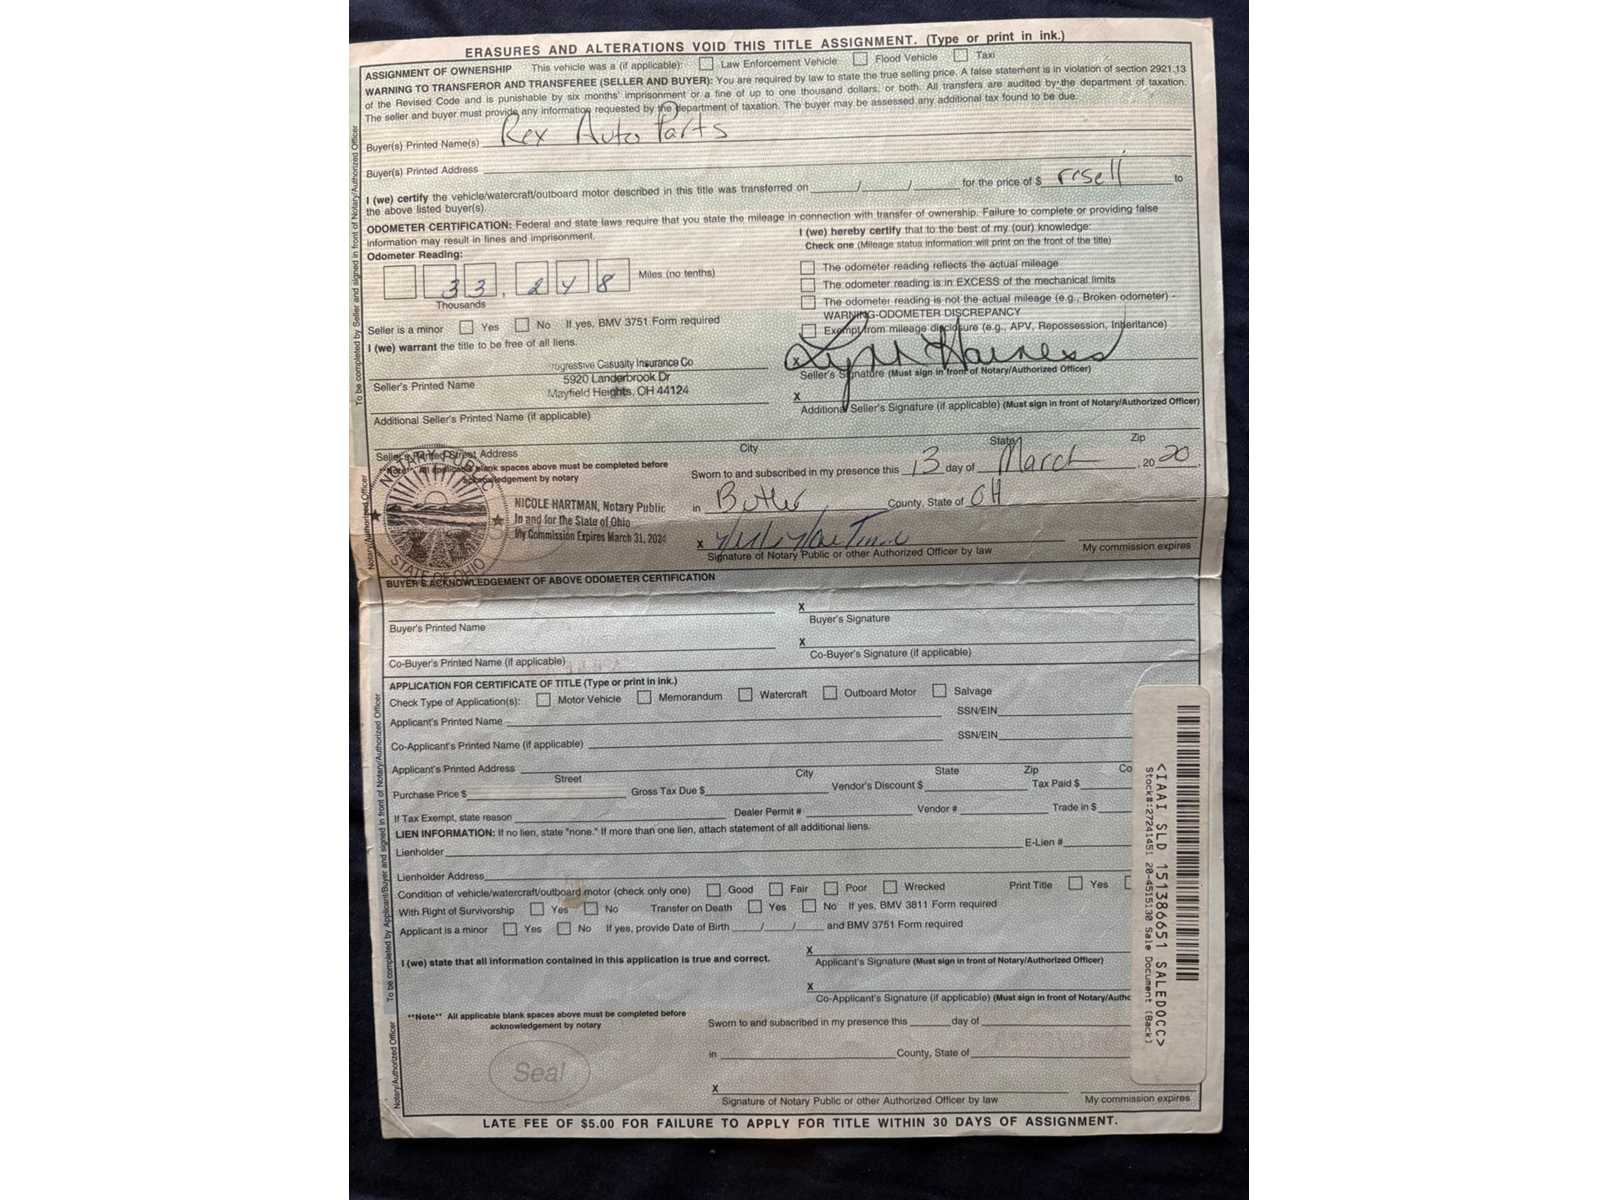 ERASURES AND ALTERATIONS VOID THIS TITLE ASSIGNMENT. (Type or print in ink.)
ASSIGNMENT OF OWNERSHIP This vehicle was a (if applicable): Law Enforcement Vehicle Flood Vehicle Taxi
WARNING TO TRANSFEROR AND TRANSFEREE (SELLER AND BUYER): You are required by law to state the true selling price. A false statement is in violation of section 2921.13
of the Revised Code and is punishable by six months' imprisonment or a fine of up to one thousand dollars, or both. All transfers are audited by the department of taxation.
The seller and buyer must provide any information requested by the department of taxation. The buyer may be assessed any additional tax found to be due.
Buyer(s) Printed Name(s) Rex Auto Parts
Buyer(s) Printed Address
I (we) certify the vehicle/watercraft/outboard motor described in this title was transferred on / / for the price of $ resell to
the above listed buyer(s).
ODOMETER CERTIFICATION: Federal and state laws require that you state the mileage in connection with transfer of ownership. Failure to complete or providing false
information may result in fines and imprisonment.
I (we) hereby certify that to the best of my (our) knowledge:
Check one (Mileage status information will print on the front of the title)
Odometer Reading:
33,248 Miles (no tenths)
Thousands
The odometer reading reflects the actual mileage
The odometer reading is in EXCESS of the mechanical limits
The odometer reading is not the actual mileage (e.g., Broken odometer) -
WARNING-ODOMETER DISCREPANCY
Exempt from mileage disclosure (e.g., APV, Repossession, Inheritance)
Seller is a minor Yes No If yes, BMV 3751 Form required
I (we) warrant the title to be free of all liens.
Progressive Casualty Insurance Co
5920 Landerbrook Dr
Mayfield Heights, OH 44124
Seller's Printed Name
X Lynn Harness
Seller's Signature (Must sign in front of Notary/Authorized Officer)
X
Additional Seller's Printed Name (if applicable)
Additional Seller's Signature (if applicable) (Must sign in front of Notary/Authorized Officer)
Seller's Printed Street Address City State Zip
**Note** All applicable blank spaces above must be completed before
acknowledgement by notary
Sworn to and subscribed in my presence this 13 day of March, 2020
in Butler County, State of OH
NOTARY PUBLIC
STATE OF OHIO
NICOLE HARTMAN, Notary Public
In and for the State of Ohio
My Commission Expires March 31, 2024
X
Signature of Notary Public or other Authorized Officer by law My commission expires
BUYER'S ACKNOWLEDGEMENT OF ABOVE ODOMETER CERTIFICATION
X
Buyer's Printed Name Buyer's Signature
X
Co-Buyer's Printed Name (if applicable) Co-Buyer's Signature (if applicable)
APPLICATION FOR CERTIFICATE OF TITLE (Type or print in ink.)
Check Type of Application(s): Motor Vehicle Memorandum Watercraft Outboard Motor Salvage
Applicant's Printed Name SSN/EIN
Co-Applicant's Printed Name (if applicable) SSN/EIN
Applicant's Printed Address
Street City State Zip Co
Purchase Price $ Gross Tax Due $ Vendor's Discount $ Tax Paid $
If Tax Exempt, state reason Dealer Permit # Vendor # Trade in $
LIEN INFORMATION: If no lien, state "none." If more than one lien, attach statement of all additional liens.
Lienholder E-Lien #
Lienholder Address
Condition of vehicle/watercraft/outboard motor (check only one) Good Fair Poor Wrecked Print Title Yes
With Right of Survivorship Yes No Transfer on Death Yes No If yes, BMV 3811 Form required
Applicant is a minor Yes No If yes, provide Date of Birth / / and BMV 3751 Form required
X
I (we) state that all information contained in this application is true and correct.
Applicant's Signature (Must sign in front of Notary/Authorized Officer)
X
Co-Applicant's Signature (if applicable) (Must sign in front of Notary/Autho
**Note** All applicable blank spaces above must be completed before
acknowledgement by notary
Sworn to and subscribed in my presence this day of
in County, State of
Seal
X
Signature of Notary Public or other Authorized Officer by law My commission expires
LATE FEE OF $5.00 FOR FAILURE TO APPLY FOR TITLE WITHIN 30 DAYS OF ASSIGNMENT.
To be completed by Seller and signed in front of Notary/Authorized Officer
Notary/Authorized Officer
To be completed by Applicant/Buyer and signed in front of Notary/Authorized Officer
Notary/Authorized Officer
<IAAI SLD 151386651 SALEDOCC>
Stock#:27241451 20-4515130 Sale Document (Back)